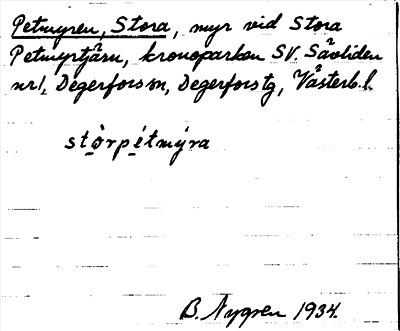 Petmyren, Stora, myr vid Stora
Petmyrtjärn, kronoparken SV. Såvliden
nr 1, Degerfors sn, Degerfors tg, Västerb. l.
stò̱rpé̱tmýra
B. Nygren 1934.